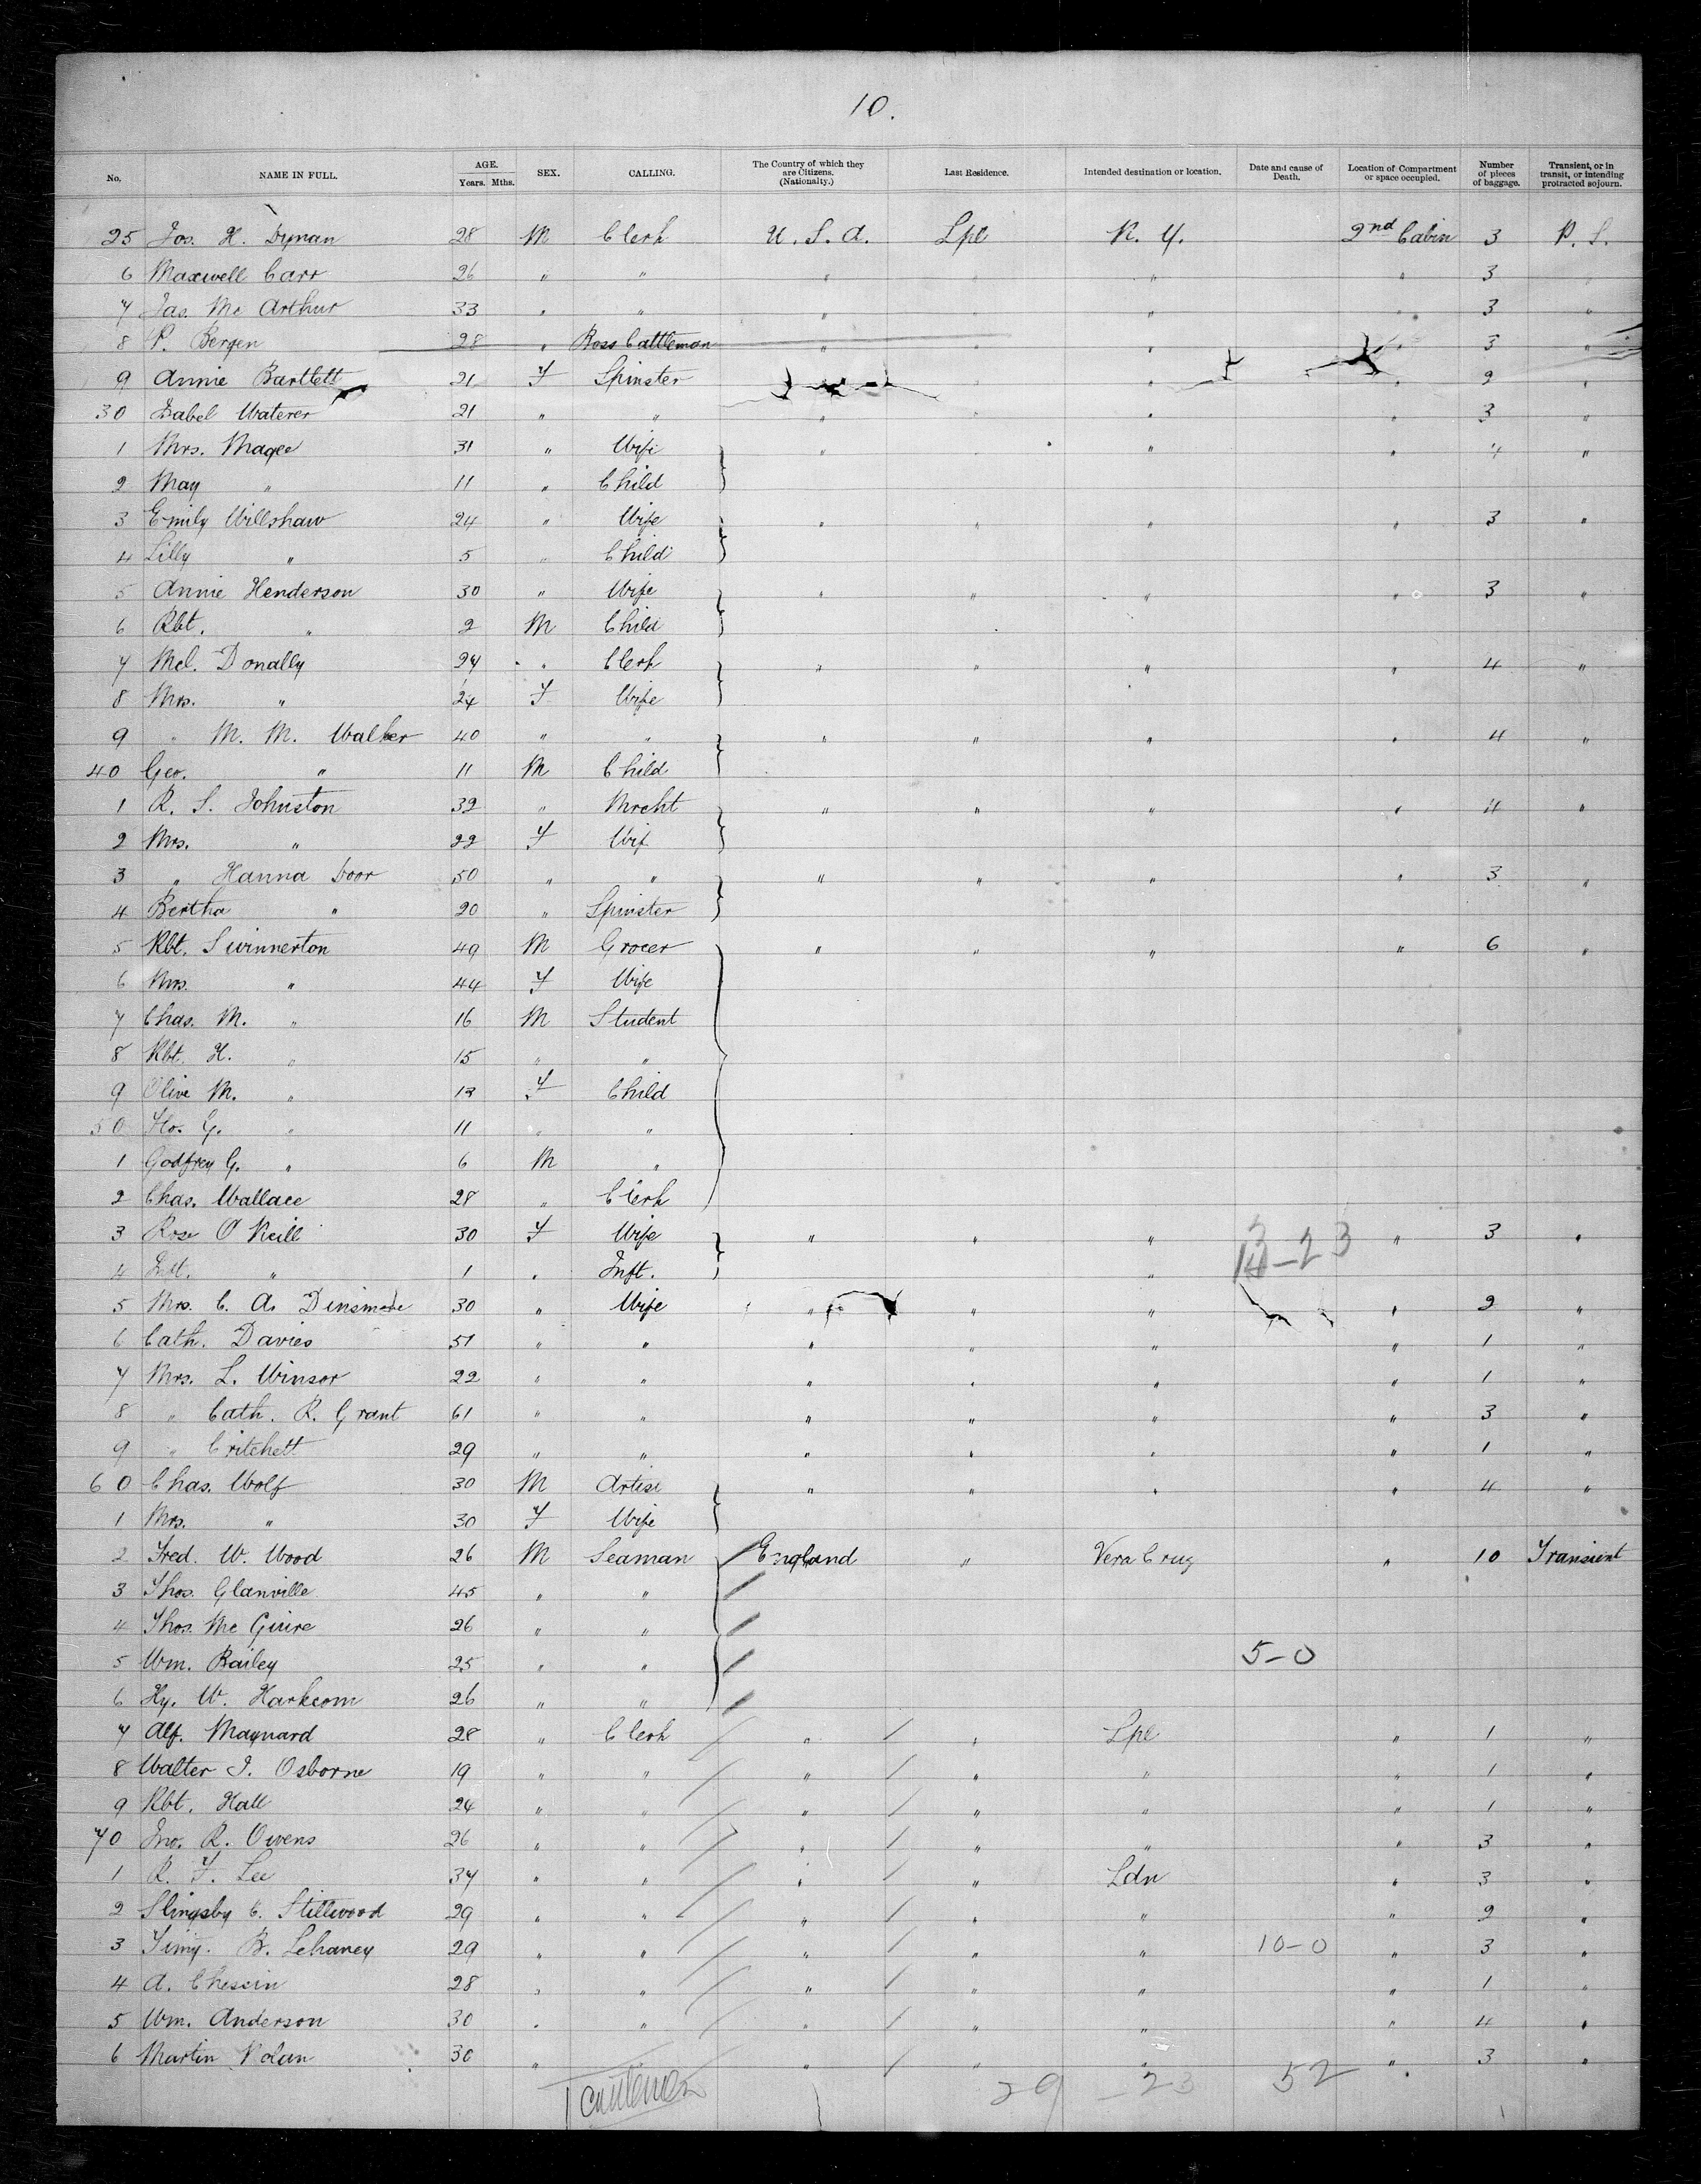 10.
No. NAME IN FULL. AGE. Years. Mths. SEX. CALLING. The Country of which they are Citizens. (Nationality.) Last Residence. Intended destination or location. Date and cause of Death. Location of Compartment or space occupied. Number of pieces of baggage. Transient, or in transit, or intending protracted sojourn.
25 Jos. H. Dyman 28 M Clerk U. S. A. Lpl N. Y. 2nd Cabin 3 P. S.
6 Maxwell Carr 26 " " " " " 3
7 Jas. Mc Arthur 33 " " " " " 3 "
8 P. Bergen 28 " Boss Cattleman " " " " 3 "
9 Annie Bartlett 21 F Spinster " " 2 "
30 Isabel Waterer 21 " " " " " " 3 "
1 Mrs. Magee 31 " Wife " " " 4 "
2 May " 11 " Child
3 Emily Willshaw 24 " Wife " " " " 3 "
4 Lilly " 5 " Child
5 Annie Henderson 30 " Wife " " " " 3 "
6 Rbt. " 2 M Child
7 Mcl. Donally 27 " Clerk " " " " 4 "
8 Mrs. " 24 F Wife
9 " M. M. Walker 40 " " " " " " 4 "
40 Geo. " 11 M Child
1 R. S. Johnston 32 " Mrcht " " " " 4 "
2 Mrs. " 22 F Wif
3 " Hanna Door 50 " " " " " " 3 "
4 Bertha " 20 " Spinster
5 Rbt. Swinnerton 49 M Grocer " " " " 6 "
6 Mrs. " 44 F Wife
7 Chas. M. " 16 M Student
8 Rbt. H. " 15 " "
9 Olive M. " 13 F Child
50 Flo. G. " 11 " "
1 Godfrey G. " 6 M "
2 Chas. Wallace 28 " Clerk
3 Rose O'Neill 30 F Wife " " " -23 " 3 "
4 Inft. " 1 " Inft. "
5 Mrs. C. A. Dinsmode 30 " Wife " " " " 2 "
6 Cath. Davies 51 " " " " " " 1 "
7 Mrs. L. Winsor 22 " " " " " " 1 "
8 " Cath. R. Grant 61 " " " " " " 3 "
9 " Critchett 29 " " " " " " 1 "
60 Chas. Wolf 30 M Artist " " " " 4 "
1 Mrs. " 30 F Wife
2 Fred. W. Wood 26 M Seaman England " Vera Cruz " 10 Transient
3 Thos. Glanville 45 " "
4 Thos. Mc Guire 26 " "
5 Wm. Bailey 25 " " 5-0
6 Hy. W. Harkcom 26 " "
7 Alf. Maynard 28 " Clerk " " Lpl " 1 "
8 Walter J. Osborne 19 " " " " " " 1 "
9 Rbt. Hall 24 " " " " " " 1 "
70 Jno. R. Owens 26 " " " " " " 3 "
1 R. F. Lee 37 " " " " Ldn " 3 "
2 Slingsby C. Stillwood 29 " " " " " " 2 "
3 Timy. B. Lehaney 29 " " " " " 10-0 " 3 "
4 A. Chessin 28 " " " " " " 1 "
5 Wm. Anderson 30 " " " " " " 4 "
6 Martin Nolan 30 " " " " " 3 "
1 Cattleman 29 - 23 52